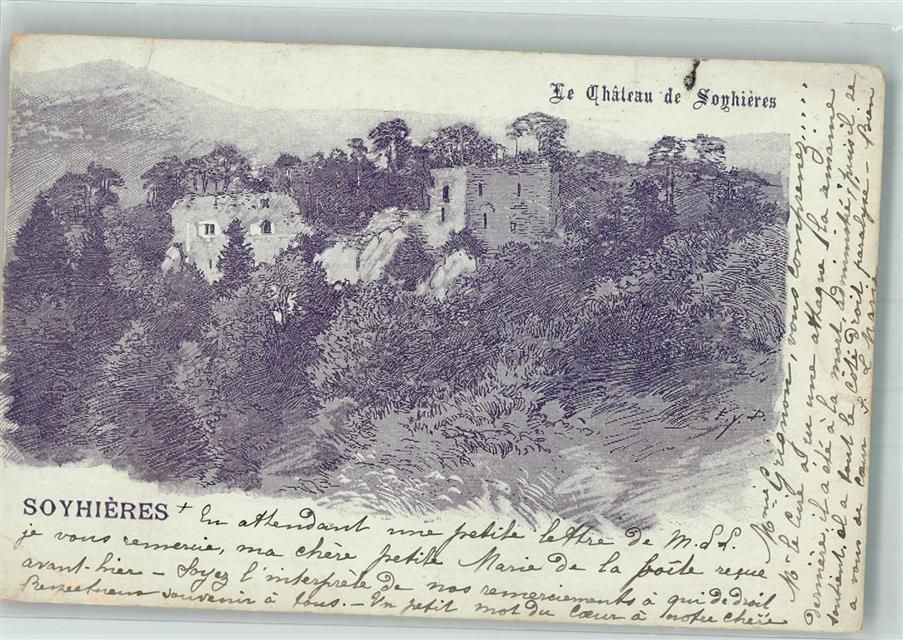 Le Château de Soyhières
E. y. D.
SOYHIÈRES + En attendant une petite lettre de M. L. L.
je vous remercie, ma chère petite Marie de la boîte reçue
avant-hier – Soyez l'interprète de nos remerciements à qui de droit
Respectueux souvenir à tous. – Un petit mot du cœur à notre chère
Mme Grignon, vous comprenez!!!...
Mr le Curé a eu une attaque la semaine
dernière, il a été à la mort, administré, puis il se
soutient, il a tout le côté droit paralysé. Bien
a vous de cœur S. L. Marie